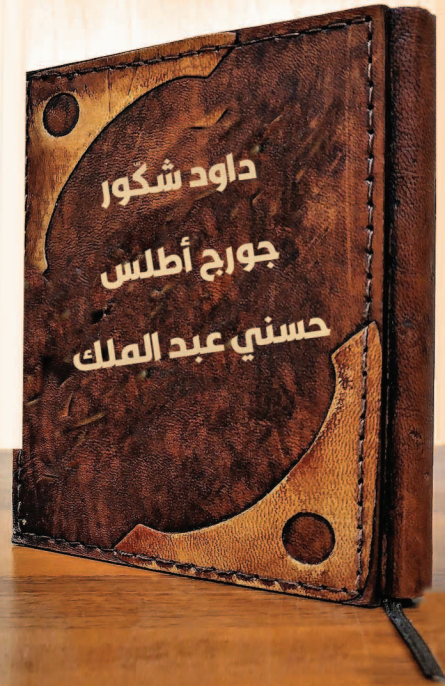 داود شكور
جورج أطلس
حسني عبد الملك